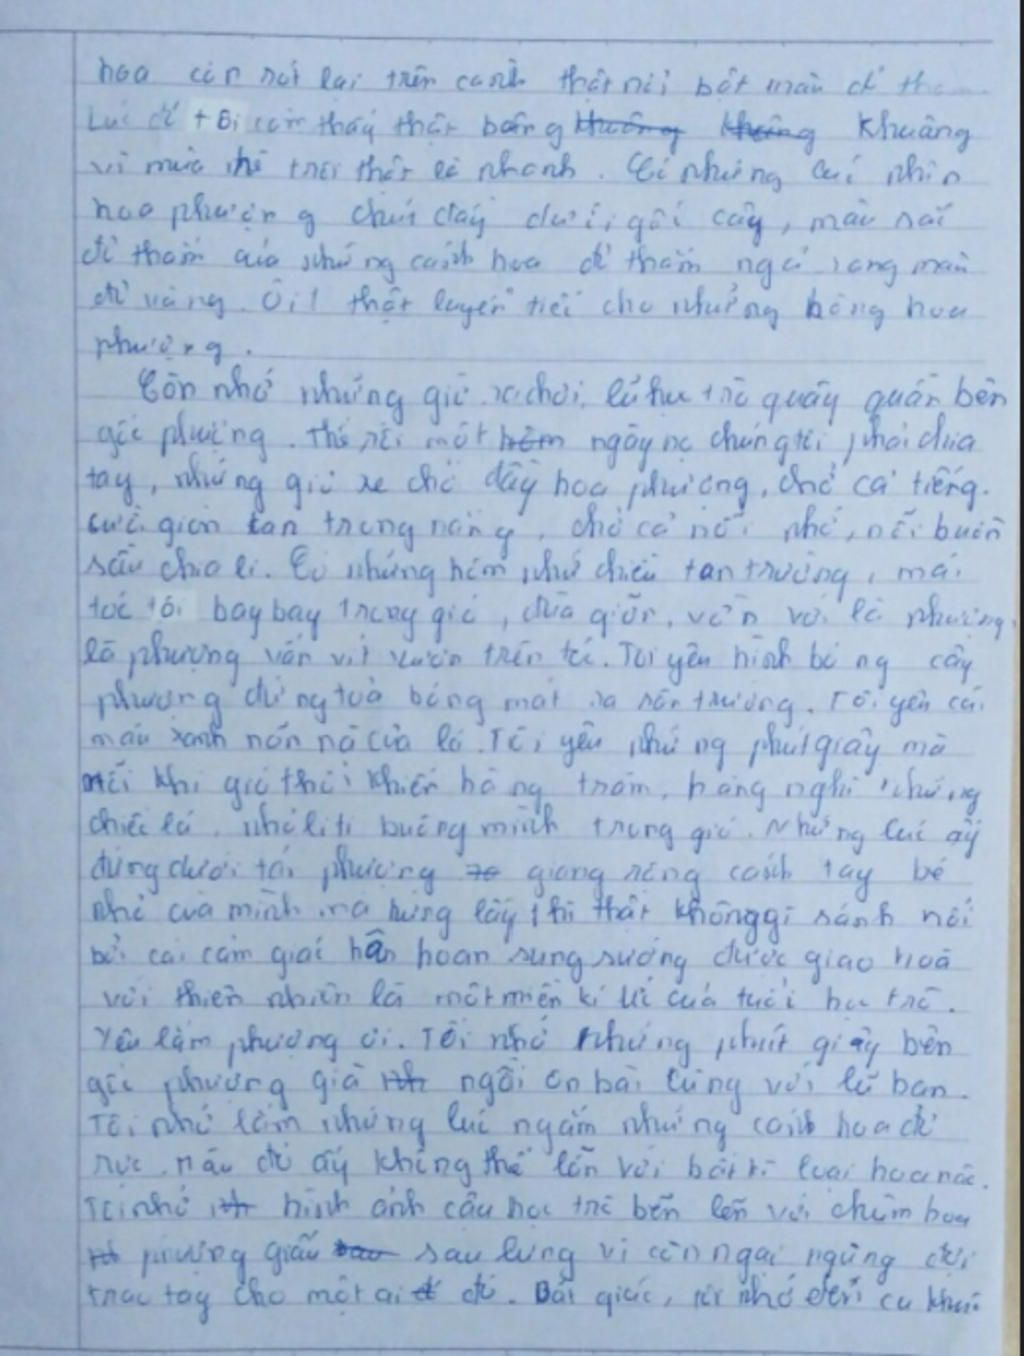 hoa còn sót lại trên cành thật nổi bật màu đỏ
Lúc đó tôi cảm thấy thật bâng khuâng
vì mùa hè trôi thật là nhanh. Có những lúc nhìn
hoa phượng chín đầy dưới gốc cây, màu sắc
đỏ thắm của những cánh hoa đỏ thắm ngả sang màu
đỏ vàng. Ôi! thật luyến tiếc cho những bông hoa
phượng.
Còn nhớ những giờ ra chơi, lũ học trò quây quần bên
gốc phượng. Thế rồi một ngày nọ chúng tôi phải chia
tay, những giỏ xe chở đầy hoa phượng, chở cả tiếng
cười giòn tan trong nắng, chở cả nỗi nhớ, nỗi buồn
sầu chia li. Có những hôm nhớ chiều tan trường, mái
tóc tôi bay bay trong gió, đùa giỡn, vờn với lá phượng,
lá phượng vấn vít vươn trên tóc. Tôi yêu hình bóng cây
phượng đứng toả bóng mát ra sân trường. Tôi yêu cái
màu xanh nõn nà của lá. Tôi yêu những phút giây mà
mỗi khi gió thổi khiến hàng trăm, hàng nghì những
chiếc lá nhỏ li ti buông mình trong gió. Những lúc ấy
đứng dưới tán phượng giang rộng cánh tay bé
nhỏ của mình ra hứng lấy thì thật không gì sánh nổi
bởi cái cảm giác hân hoan sung sướng được giao hoà
với thiên nhiên là một miền kí ức của tuổi học trò.
Yêu lắm phượng ơi. Tôi nhớ những phút giây bên
gốc phượng già ngồi ôn bài cùng với lũ bạn.
Tôi nhớ lắm những lúc ngắm những cánh hoa đỏ
rực, màu đỏ ấy không thể lẫn với bất kì loại hoa nào.
Tôi nhớ hình ảnh cậu học trò bẽn lẽn với chùm hoa
phượng giấu sau lưng vì còn ngại ngùng đợi
trao tay cho một ai đó. Bất giác, tôi nhớ đến